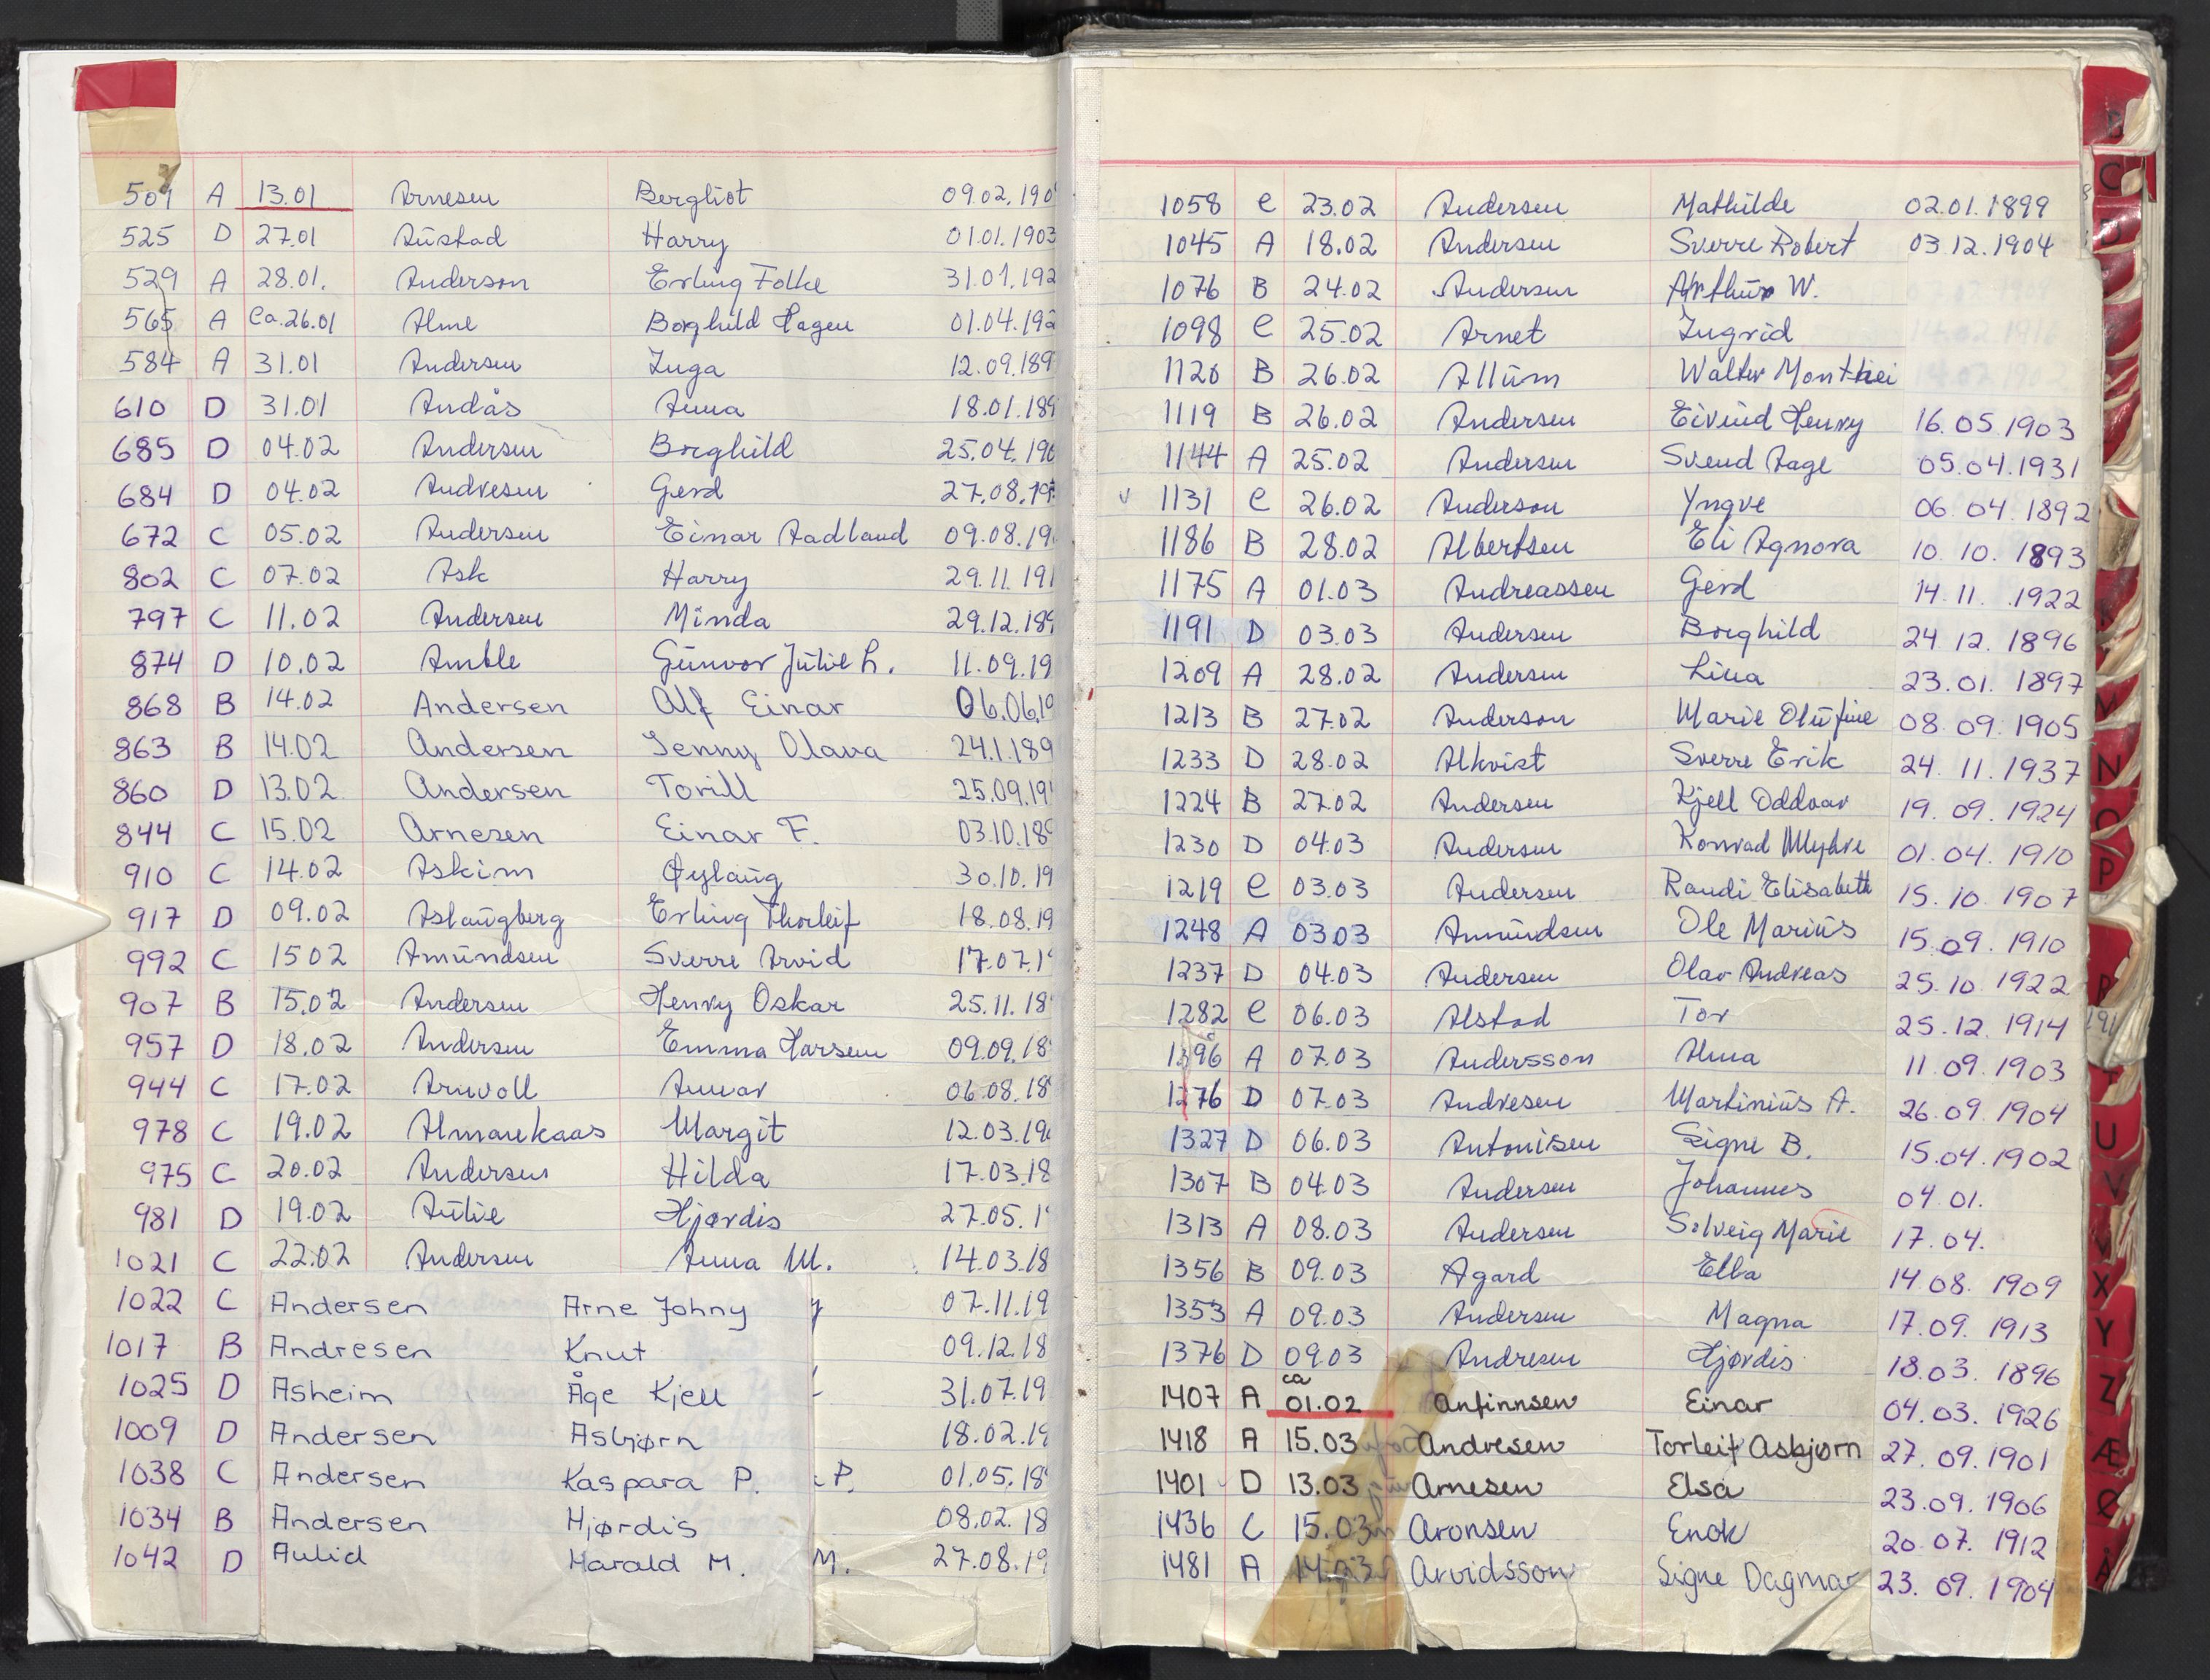 509 A 13.01 Arnesen Bergliot 09.02.190
525 D 27.01 Austad Harry 01.01.1903
529 A 28.01. Anderson Erling Folke 31.01.192
565 A Ca.26.01 Alme Borghild Hagen 01.04.192
584 A 31.01 Andersen Inga 12.09.189
610 D 31.01 Andås Anna 18.01.189
685 D 04.02 Andersen Borghild 25.04.190
684 D 04.02 Andresen Gerd 27.08.19
672 C 05.02 Andersen Einar Aadland 09.08.19
802 C 07.02 Ask Harry 29.11.191
797 C 11.02 Andersen Minda 29.12.189
874 D 10.02 Amble Gunvor Julie L. 11.09.19
868 B 14.02 Andersen Alf Einar 06.06.19
863 B 14.02 Andersen Jenny Olava 24.1.189
860 D 13.02 Andersen Torill 25.09.19
844 C 15.02 Arnesen Einar F. 03.10.189
910 C 14.02 Askim Øylaug 30.10.19
917 D 09.02 Aslaugberg Erling Thorleif 18.08.19
992 C 15 02 Amundsen Sverre Arvid 17.07.1
907 B 15.02 Andersen Henry Oskar 25.11.18
957 D 18.02 Andersen Emma Harsem 09.09.18
944 C 17.02 Arnvoll Annar 06.08.18
978 C 19.02 Almankaas Margit 12.03.19
975 C 20.02 Andersen Hilda 17.03.18
981 D 19.02 Aulie Hjørdis 27.05.1
1021 C 22.02 Andersen Anna M. 14.03.18
1022 C Andersen Arne Johny y 07.11.19
1017 B Andresen Knut 09.12.18
1025 D Asheim Åge Kjell 31.07.19
1009 D Andersen Asbjørn 18.02.19
1038 C Andersen Kaspara P. P. 01.05.18
1034 B Andersen Hjørdis 08.02.18
1042 D Aulid Harald M. M. 27.08.19
1058 C 23.02 Andersen Mathilde 02.01.1899
1045 A 18.02 Andersen Sverre Robert 03.12.1904
1076 B 24.02 Andersen Arthur W.
1098 C 25.02 Arnet Ingrid
1120 B 26.02 Allum Walter Monthei
1119 B 26.02 Andersen Eivind Henry 16.05.1903
1144 A 25.02 Andersen Svend Aage 05.04.1931
v 1131 C 26.02 Anderson Yngve 06.04.1892
1186 B 28.02 Albertsen Eli Agnora 10.10.1893
1175 A 01.03 Andreassen Gerd 14.11.1922
1191 D 03.03 Andersen Borghild 24.12.1896
1209 A 28.02 Andersen Lina 23.01.1897
1213 B 27.02 Anderson Marie Olufine 08.09.1905
1233 D 28.02 Alkvist Sverre Erik 24.11.1937
1224 B 27.02 Andersen Kjell Oddvar 19.09.1924
1230 D 04.03 Andersen Konrad 01.04.1910
1219 C 03.03 Andersen Randi Elisabeth 15.10.1907
1248 A 03.03 Amundsen Ole Marius 15.09.1910
1237 D 04.03 Andersen Olav Andreas 25.10.1922
1282 C 06.03 Alstad Tor 25.12.1914
1296 A 07.03 Andersson Alma 11.09.1903
1276 D 07.03 Andresen Martinius A. 26.09.1904
1327 D 06.03 Antonisen Signe B. 15.04.1902
1307 B 04.03 Andersen Johannes 04.01.
1313 A 08.03 Andersen Solveig Marie 17.04.
1356 B 09.03 Agard Ebba 14.08.1909
1353 A 09.03 Andersen Magna 17.09.1913
1376 D 09.03 Andresen Hjørdis 18.03.1896
1407 A ca 01.02 Anfinnsen Einar 04.03.1926
1418 A 15.03 Andresen Torleif Asbjørn 27.09.1901
1401 D 13.03 Arnesen Elsa 23.09.1906
1436 C 15.03 Aronsen Enok 20.07.1912
1481 A 14.03 Arvidsson Signe Dagmar 23.09.1904
C
D
N
O
P
U
V
X
Y
Z
Æ
Ø
Å